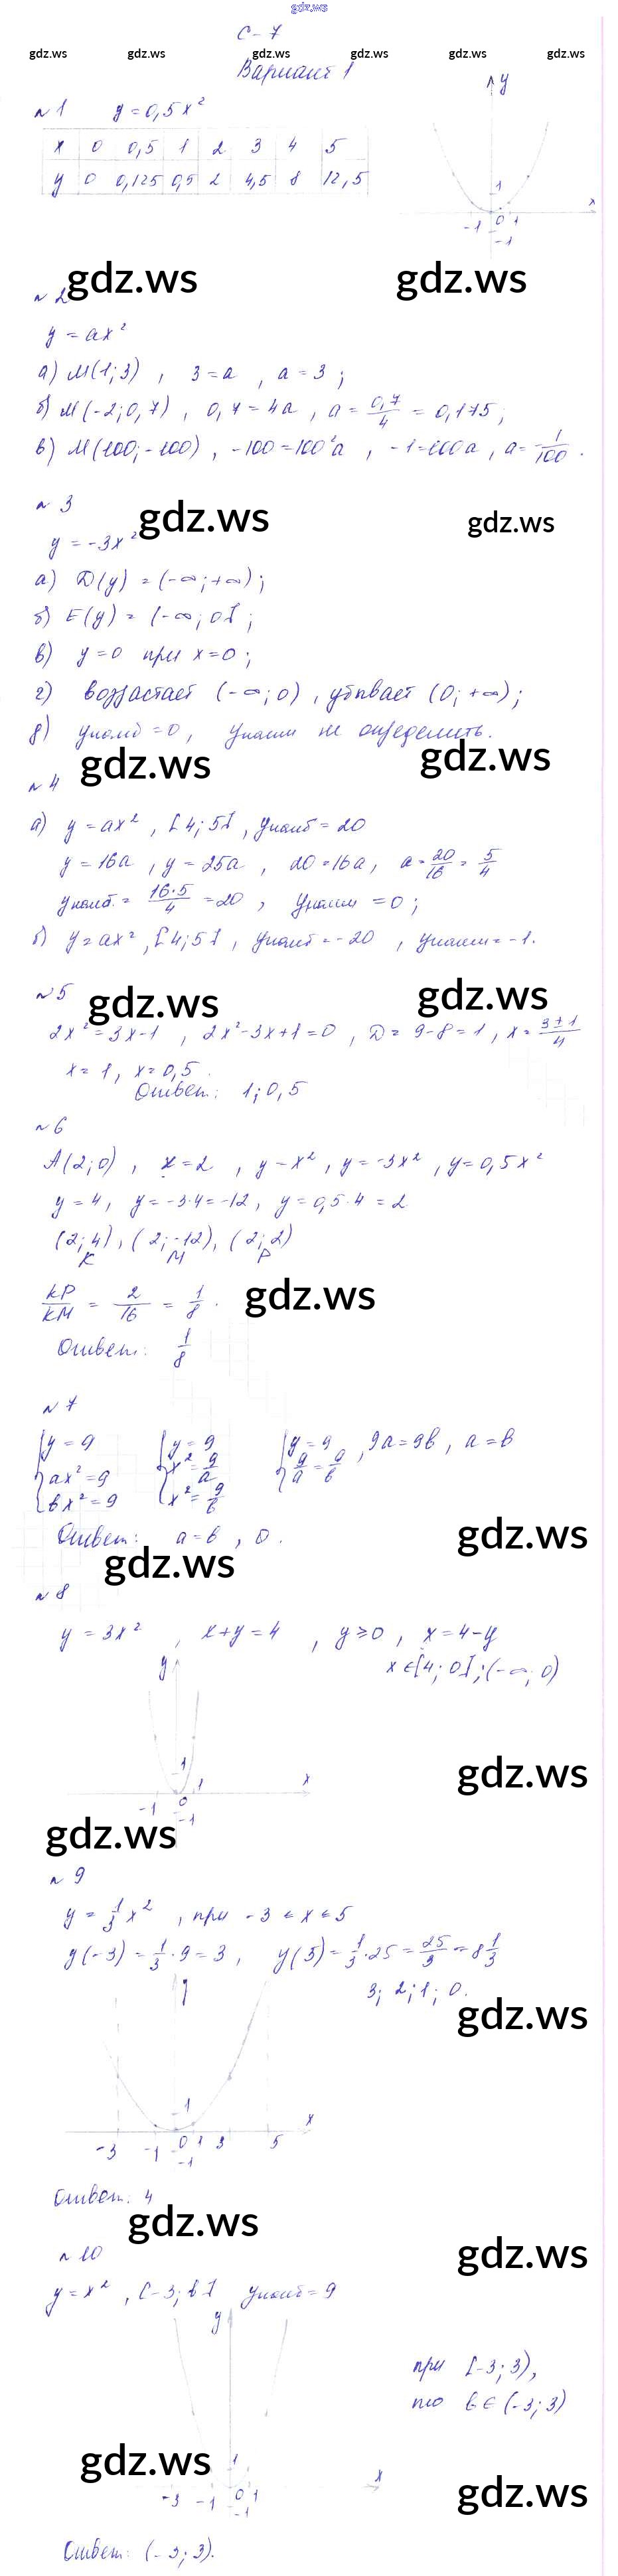 gdz.ws
С-7
gdz.ws gdz.ws gdz.ws gdz.ws gdz.ws gdz.ws
Вариант 1
№1 y = 0,5x²
x 0 0,5 1 2 3 4 5
y 0 0,125 0,5 2 4,5 8 12,5
y
1
x
-1 0 1
-1
gdz.ws gdz.ws
№2
y = ax²
а) M(1; 3) , 3 = a , a = 3 ;
б) M(-2; 0,7) , 0,7 = 4a , a = 0,7/4 = 0,175 ;
в) M(100; -100) , -100 = 100²a , -1 = 100a , a = 1/100 .
№3
gdz.ws gdz.ws
y = -3x²
а) D(y) = (-∞; +∞) ;
б) E(y) = (-∞; 0] ;
в) y = 0 при x = 0 ;
г) возрастает (-∞; 0) , убывает (0; +∞) ;
д) yнаиб = 0 , yнаим не определить.
gdz.ws gdz.ws
№4
а) y = ax² , [4; 5] , yнаиб = 20
y = 16a , y = 25a , 20 = 16a , a = 20/16 = 5/4
yнаиб. = 16·5/4 = 20 , yнаим = 0 ;
б) y = ax² , [4; 5] , yнаиб = -20 , yнаим = -1.
№5
gdz.ws gdz.ws
2x² = 3x-1 , 2x²-3x+1 = 0 , D = 9-8 = 1 , x = 3±1/4
x = 1 , x = 0,5 .
Ответ: 1; 0,5
№6
A(2; 0) , x = 2 , y = x² , y = -3x² , y = 0,5x²
y = 4 , y = -3·4 = -12 , y = 0,5·4 = 2
(2; 4) , (2; -12) , (2; 2)
K M P
KP/KM = 2/16 = 1/8 .
gdz.ws
Ответ: 1/8
№7
{y = 9 {y = 9 {y = 9 , 9a = 9b , a = b
ax² = 9 x² = 9/a 9/a = 9/b
bx² = 9 x² = 9/b
Ответ: a = b , 0 .
gdz.ws
gdz.ws
№8
y = 3x² , x+y = 4 , y ≥ 0 , x = 4-y
x ∈ [4; 0] ; (-∞; 0)
y
1
x
-1 0 1
-1
gdz.ws
gdz.ws
№9
y = 1/3 x² , при -3 ≤ x ≤ 5
y(-3) = 1/3 · 9 = 3 , y(5) = 1/3 · 25 = 25/3 = 8 1/3
3; 2; 1; 0.
gdz.ws
1
x
-3 -1 0 1 3 5
-1
Ответ: 4
gdz.ws
№10
gdz.ws
y = x² , [-3; b] yнаиб = 9
y
при [-3; 3) ,
то b ∈ (-3; 3)
gdz.ws
1
x
-3 -1 0 1
-1
gdz.ws
Ответ: (-3; 3).